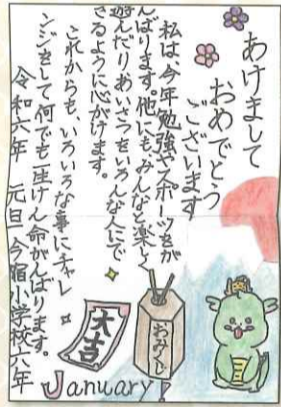 あけまして
おめでとう
ございます
私は、今年勉強やスポーツをが
んばります。他にも、みんなと楽しく
遊んだりあいさつをいろんな人にで
きるように心がけます。
これからも、いろいろな事にチャレ
ンジをして何でも一生けん命がんばります。
令和六年 元旦 今宿小学校六年
おみくじ
大吉
January!